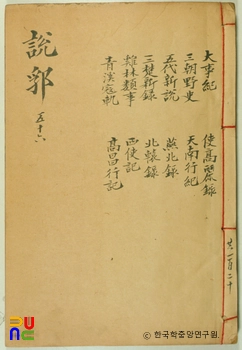 說郛
五十六
大事紀
三朝野史
五代新說
三楚新錄
雞林類事
青溪寇軌
使高麗錄
天南行紀
燕北錄
北轅錄
西使記
高昌行記
共一百二十
한국학중앙연구원